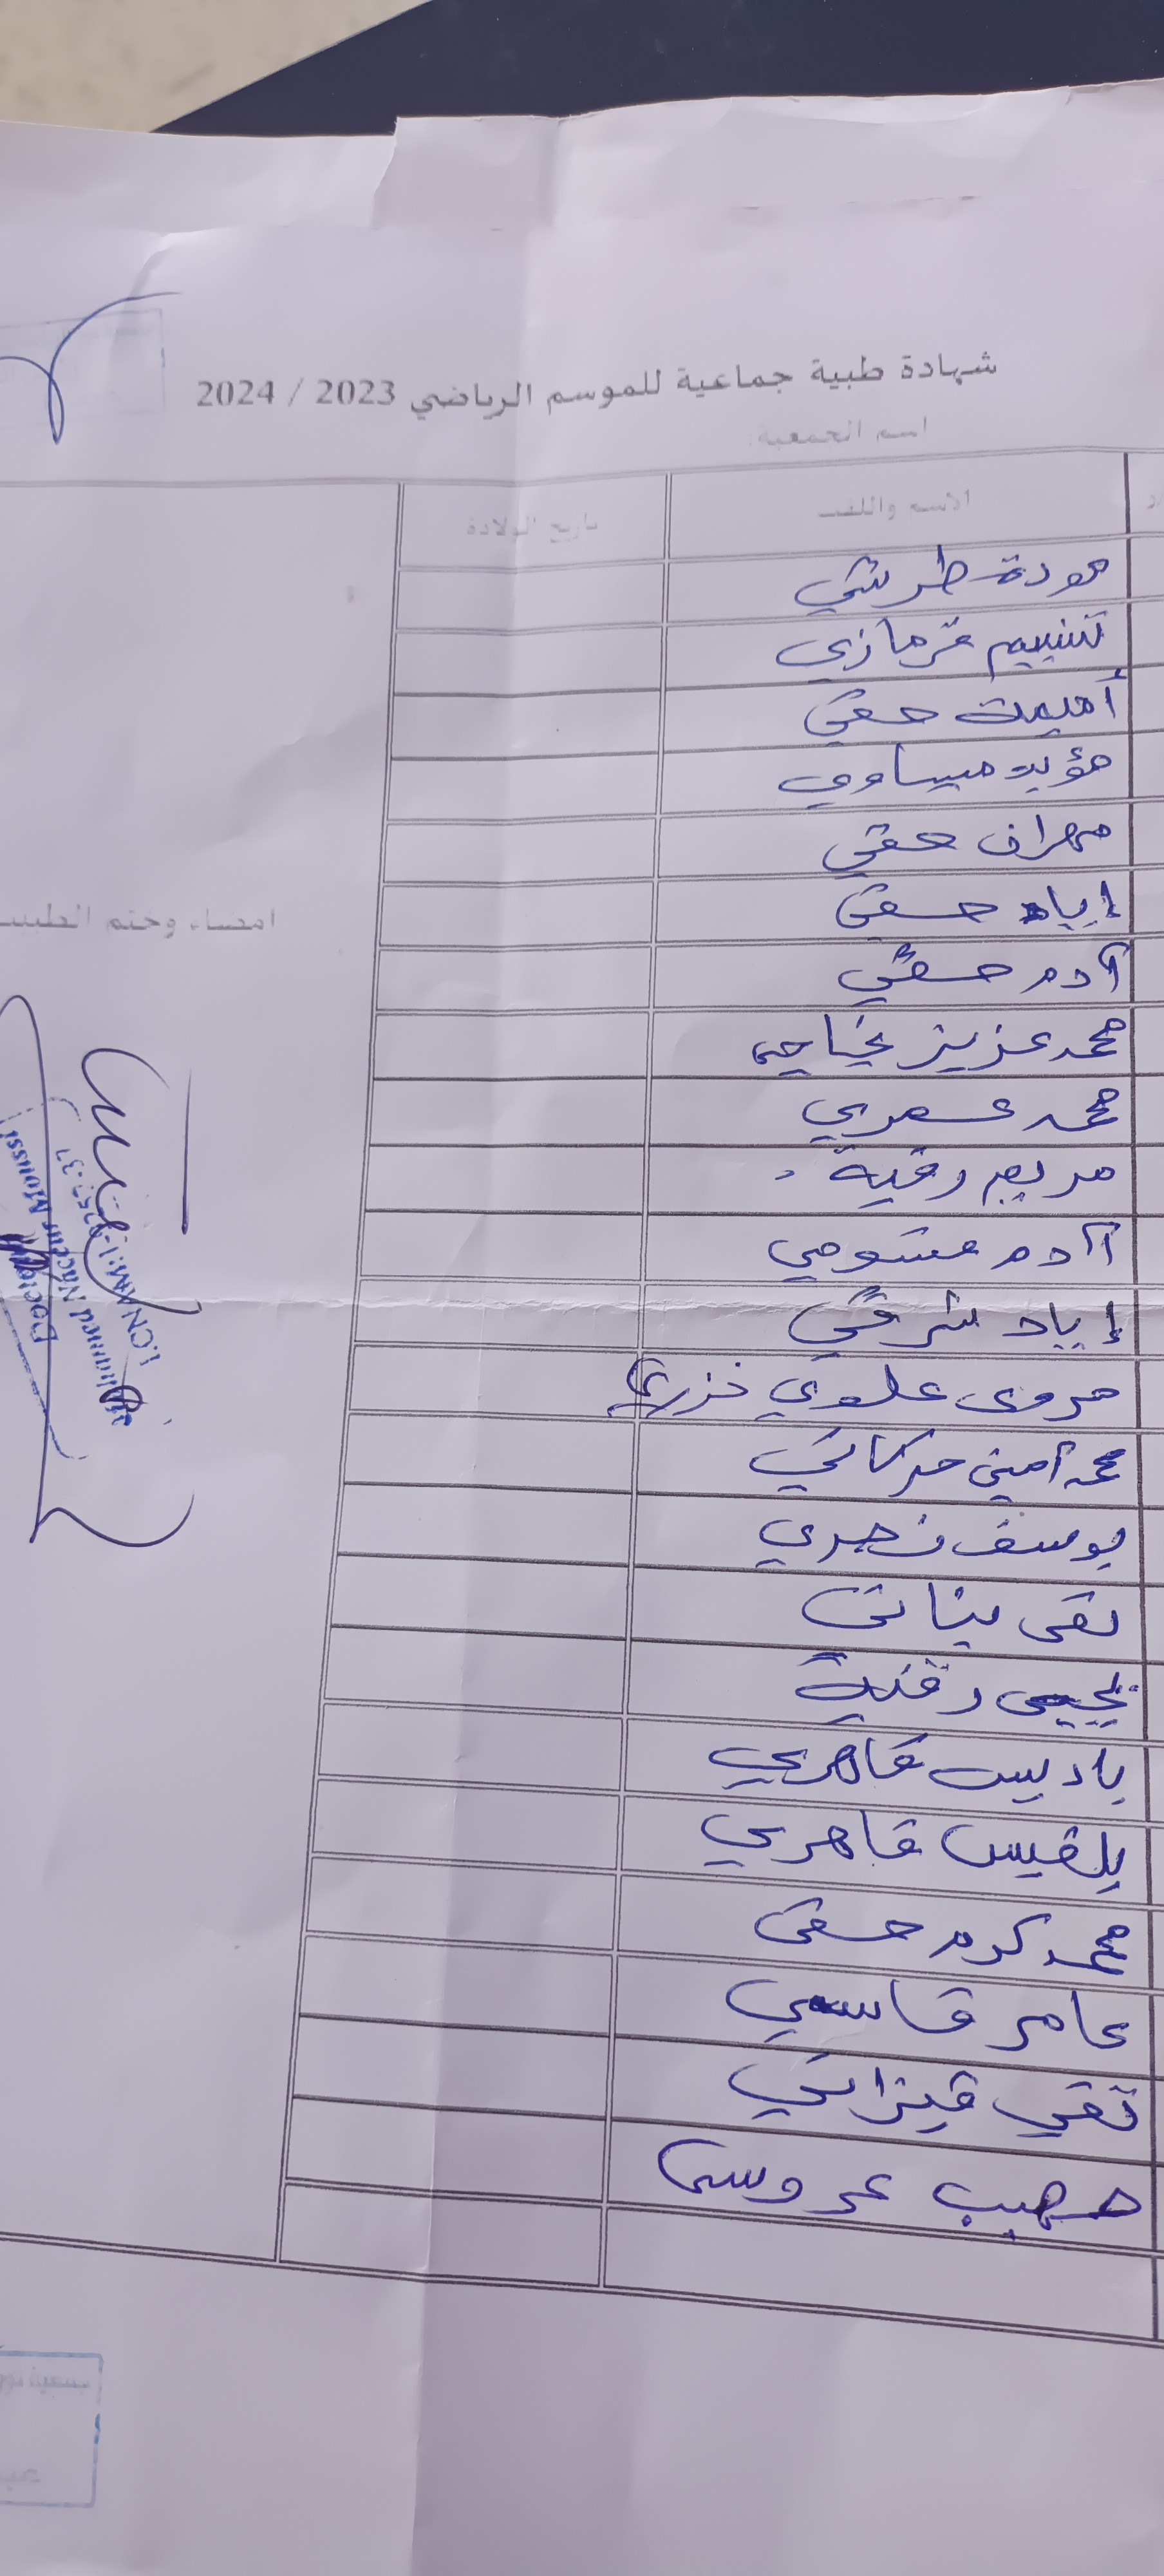 شهادة طبية جماعية للموسم الرياضي 2023 / 2024
اسم الجمعية:
الاسم واللقب
تاريخ الولادة
مودة طرشي
تسنيم قرمازي
أميمة حقي
مؤيد ميساوي
مهران حقي
إياد حقي
آدم حقي
محمد عزيز
محمد عمري
مريم رقية
آدم عشومي
إياد شرقي
مروى علوي نزري
محمد أمين حركاتي
يوسف نصري
تقى بناني
يحيى رقية
باديس قاهري
بلقيس قاهري
محمد كرم حقي
عامر قاسمي
تقي قيزاني
صهيب عروسي
امضاء وختم الطبيب
Docteur
Mohamed Naceur Moussi